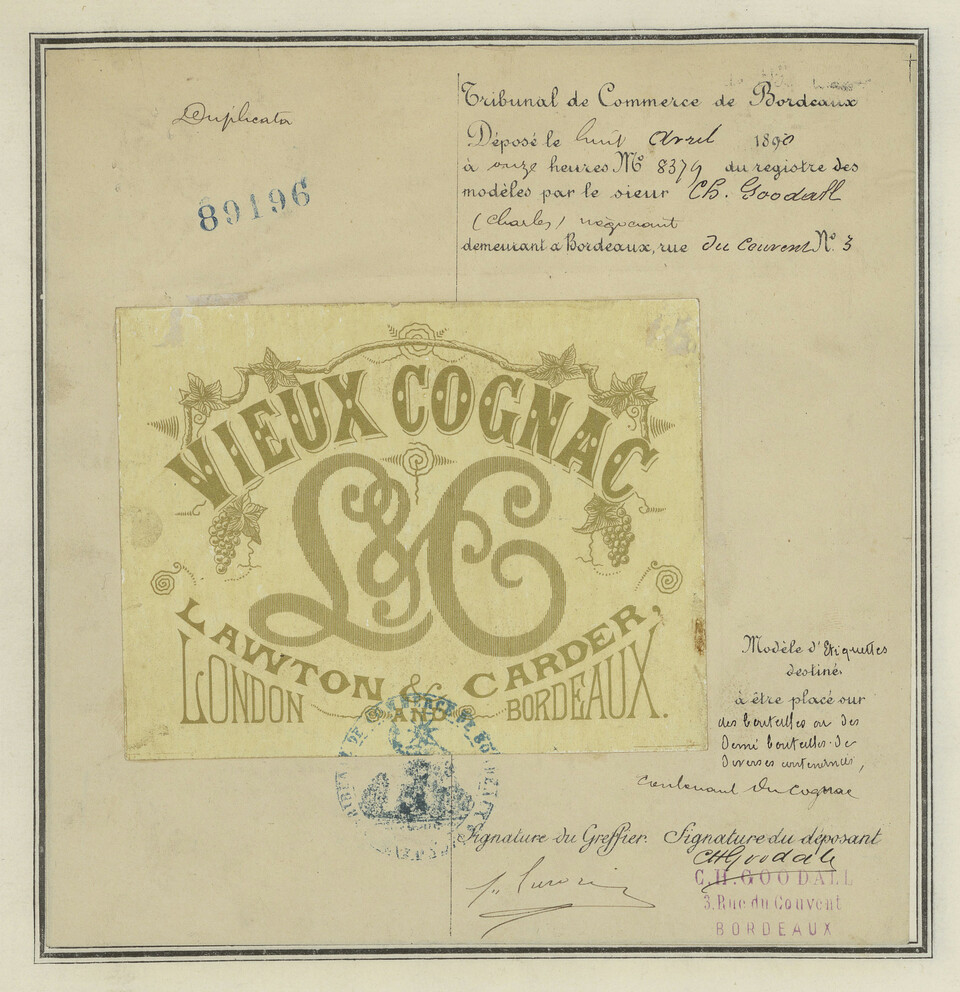 Duplicata
89196
Tribunal de Commerce de Bordeaux
Déposé le huit Avril 1890
à onze heures No 8379 du registre des
modèles par le sieur Ch. Goodall
(Charles) négociant
demeurant à Bordeaux, rue du Couvent No. 3
VIEUX COGNAC
L&C
LAWTON & CARDER,
LONDON AND BORDEAUX.
Modèle d'Etiquettes
destiné
à être placé sur
des bouteilles ou des
Demi bouteilles de
Diverses contenances,
contenant du Cognac
Signature du Greffier. Signature du déposant
CHGoodall
C.H. GOODALL
3, Rue du Couvent
BORDEAUX
COMMERCE DE BORDEAUX